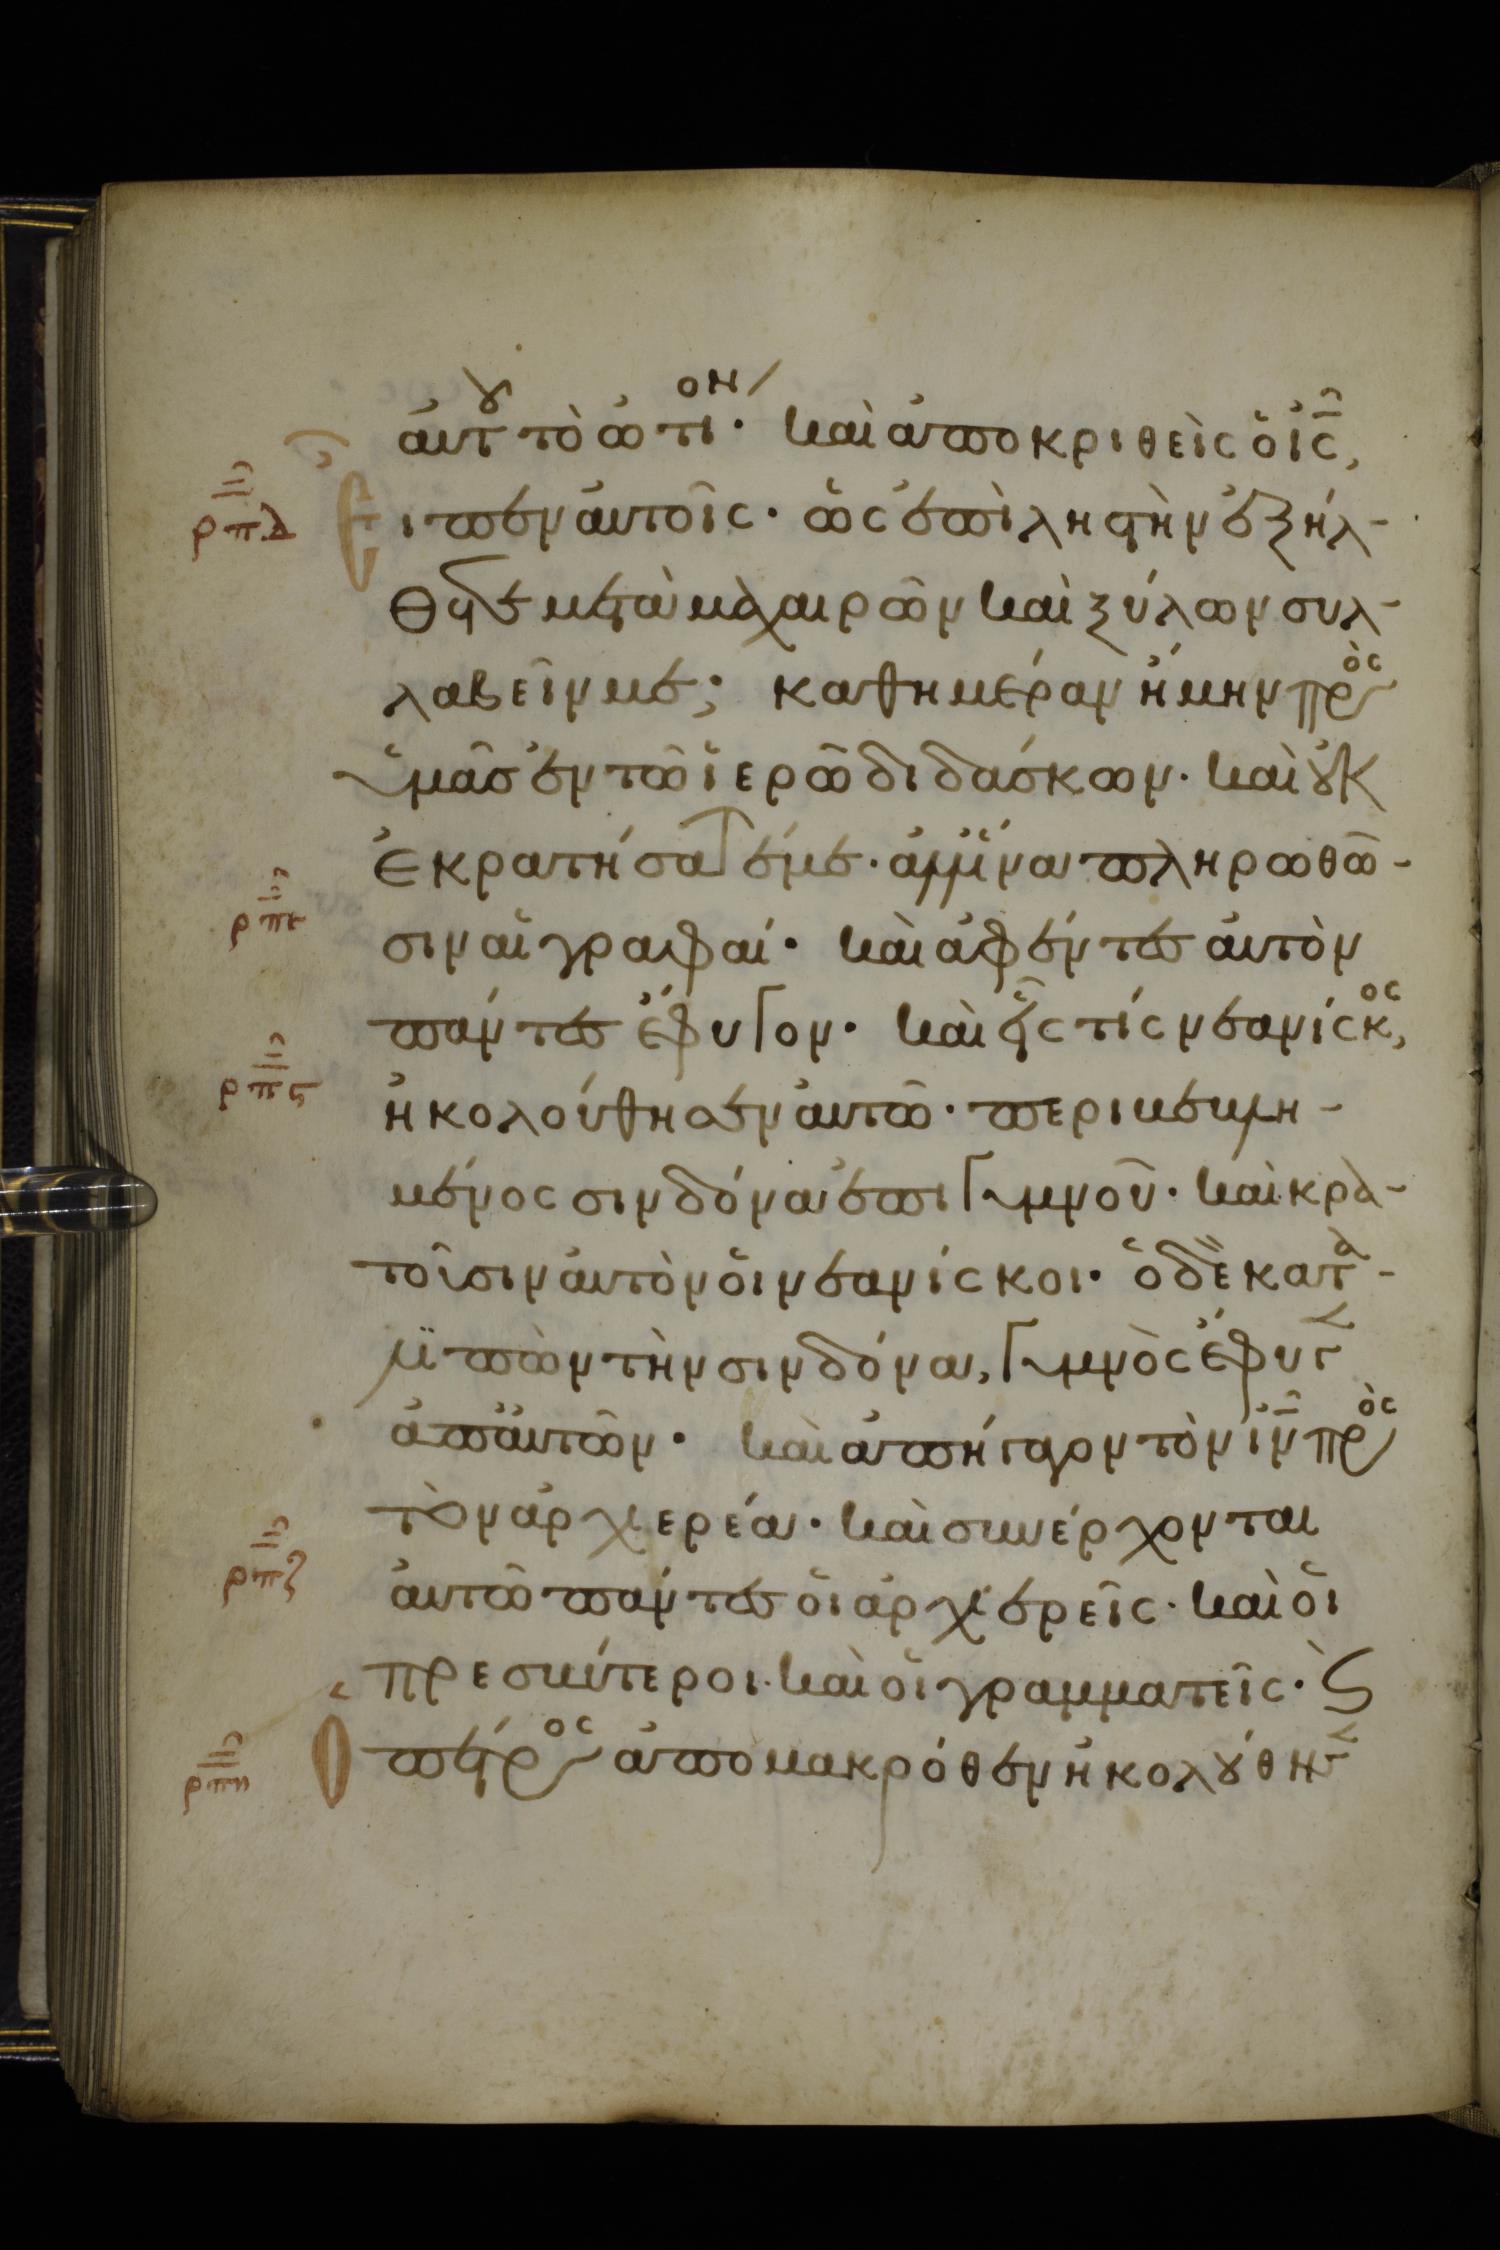 αὐτου τὸ ὠτίον· καὶ ἀποκριθεὶς ὁ ἰς,
ρπδ εἶπεν αὐτοῖς· ὡς ἐπὶ ληστὴν ἐξήλ-
θετε μετὰ μαχαιρῶν καὶ ξύλων συλ-
λαβεῖν με; καθημέραν ἤμην πρὸς
ὑμᾶς ἐν τῶ ἱερῶ διδάσκων· καὶ οὐκ
ἐκρατήσατέ με· ἀλλ ἵνα πληρωθῶ-
ρπε σιν αἱ γραφαί· καὶ ἀφέντες αὐτὸν
πάντες ἔφυγον· καὶ εἷς τίς νεανίσκος,
ρπς ἠκολούθησεν αὐτῶ· περιβεβλη-
μένος σινδόνα ἐπι γυμνοῦ· καὶ κρα-
τοῦσιν αὐτὸν οἱ νεανίσκοι· ὁ δὲ κατα-
λιπὼν τὴν σινδόνα, γυμνὸς ἔφυγεν
ἀπ αὐτῶν· καὶ ἀπήγαγον τὸν ἰν πρὸς
τὸν ἀρχιερέα· καὶ συνέρχονται
ρπζ αὐτῶ πάντες οἱ ἀρχιερεῖς· καὶ οἱ
πρεσβύτεροι· καὶ οἱ γραμματεῖς· ϗ
ρπη ὁ πέτρος ἀπο μακρόθεν ἠκολούθησεν